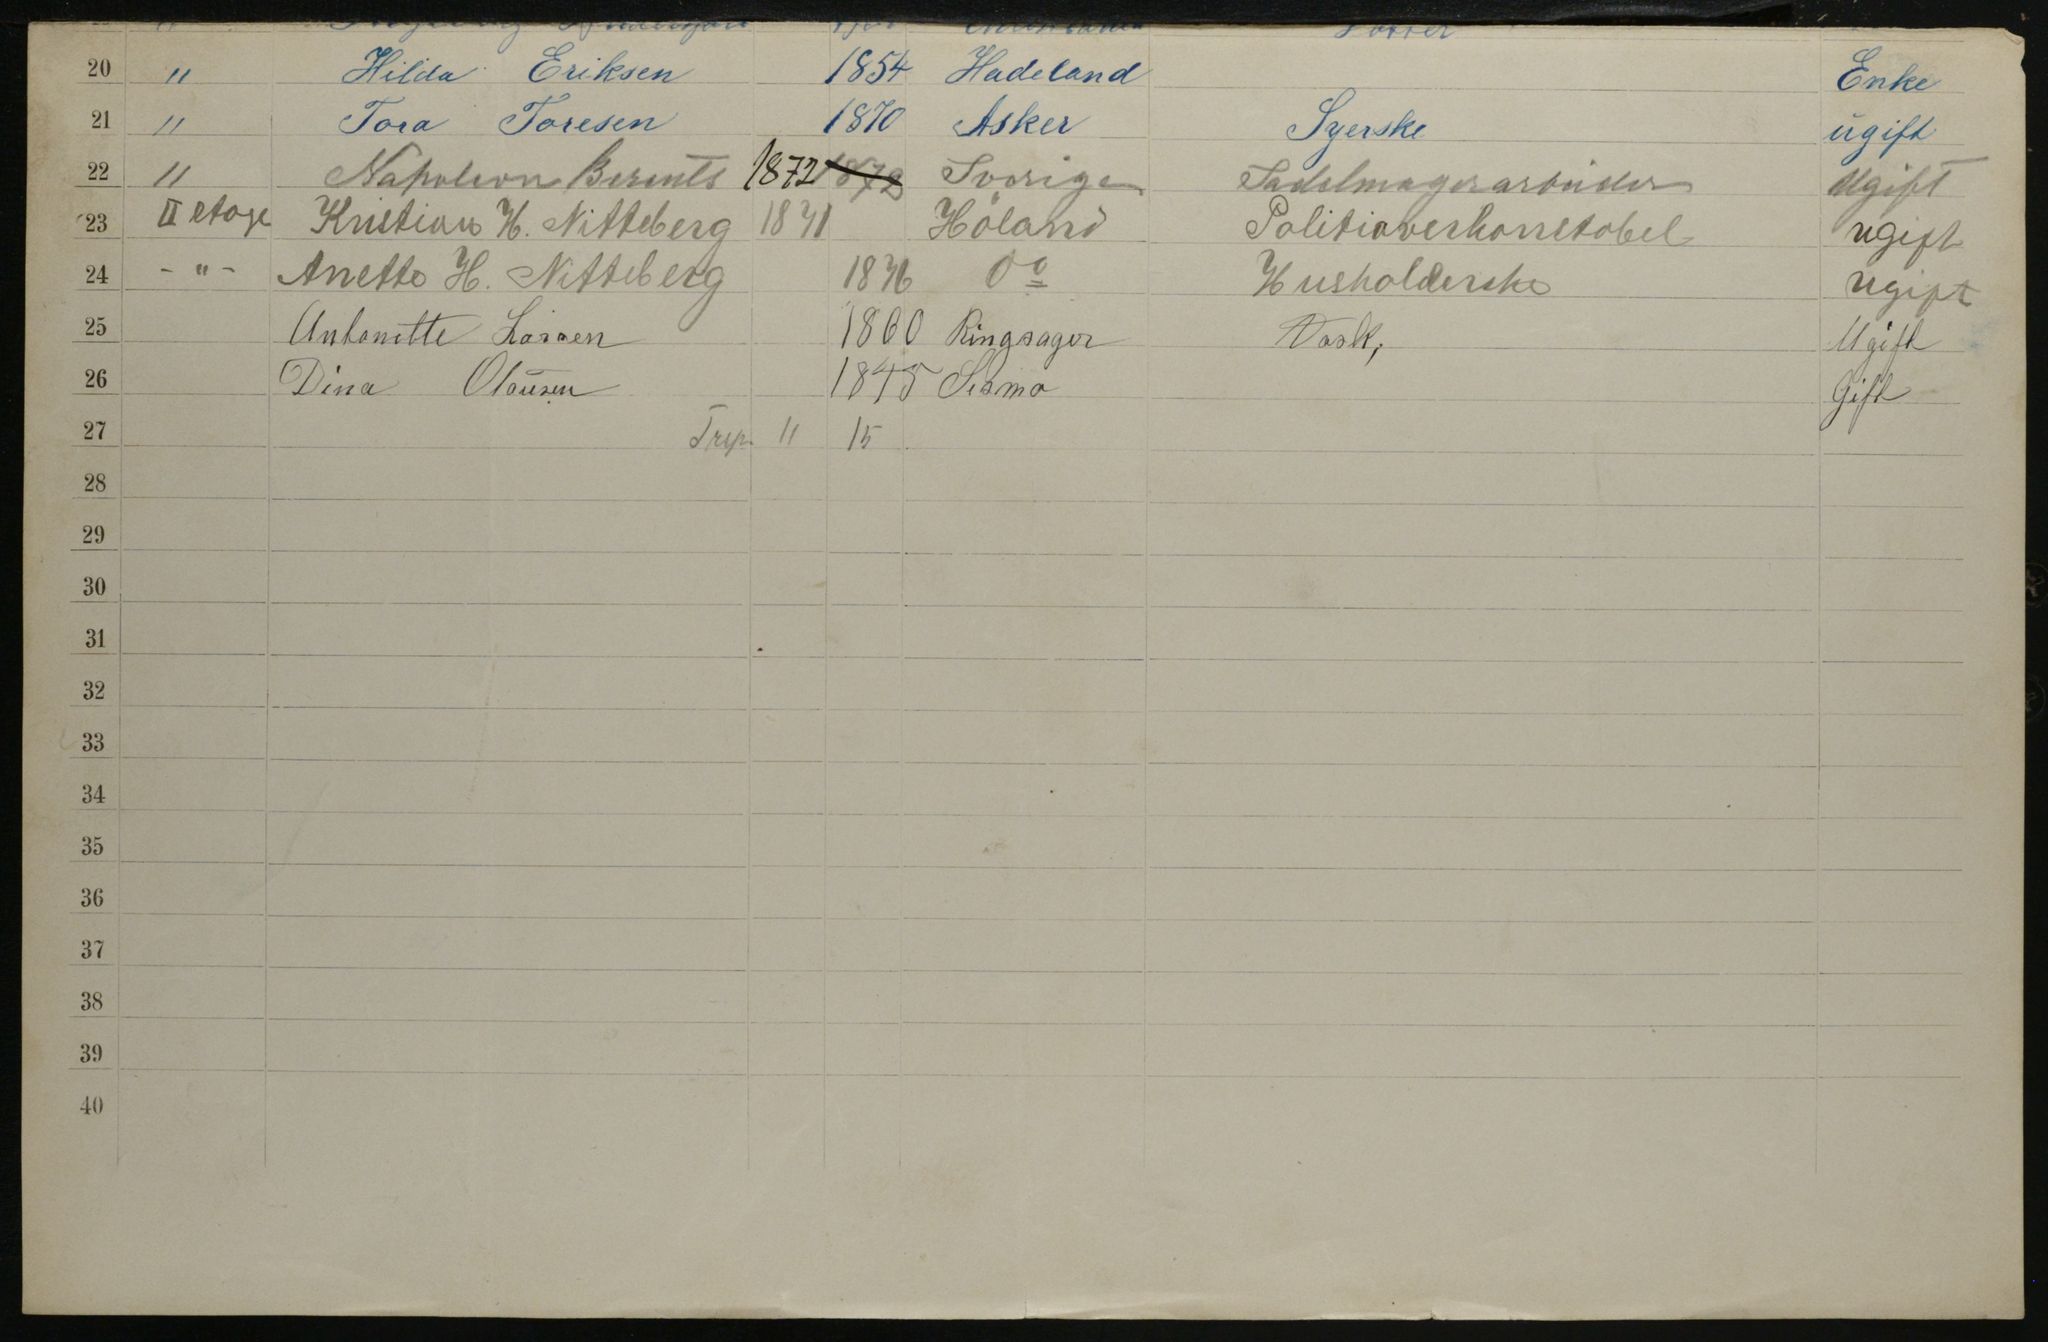 20 " Hilda Eriksen 1854 Hadeland Enke
21 " Tora Toresen 1870 Asker Syerske ugift
22 " Napoleon Berents 1872 1872 Sverige Sadelmagerarbeider Ugift
23 II etage Kristian H. Nitteberg 1871 Höland Politioverkonstabel ugift
24 - " - Anette H. Nitteberg 1876 Do Husholderske ugift
25 Antonette Larsen 1860 Ringsager Vask, Ugift
26 Dina Olausen 1845 Gift
27 " 15
28
29
30
31
32
33
34
35
36
37
38
39
40